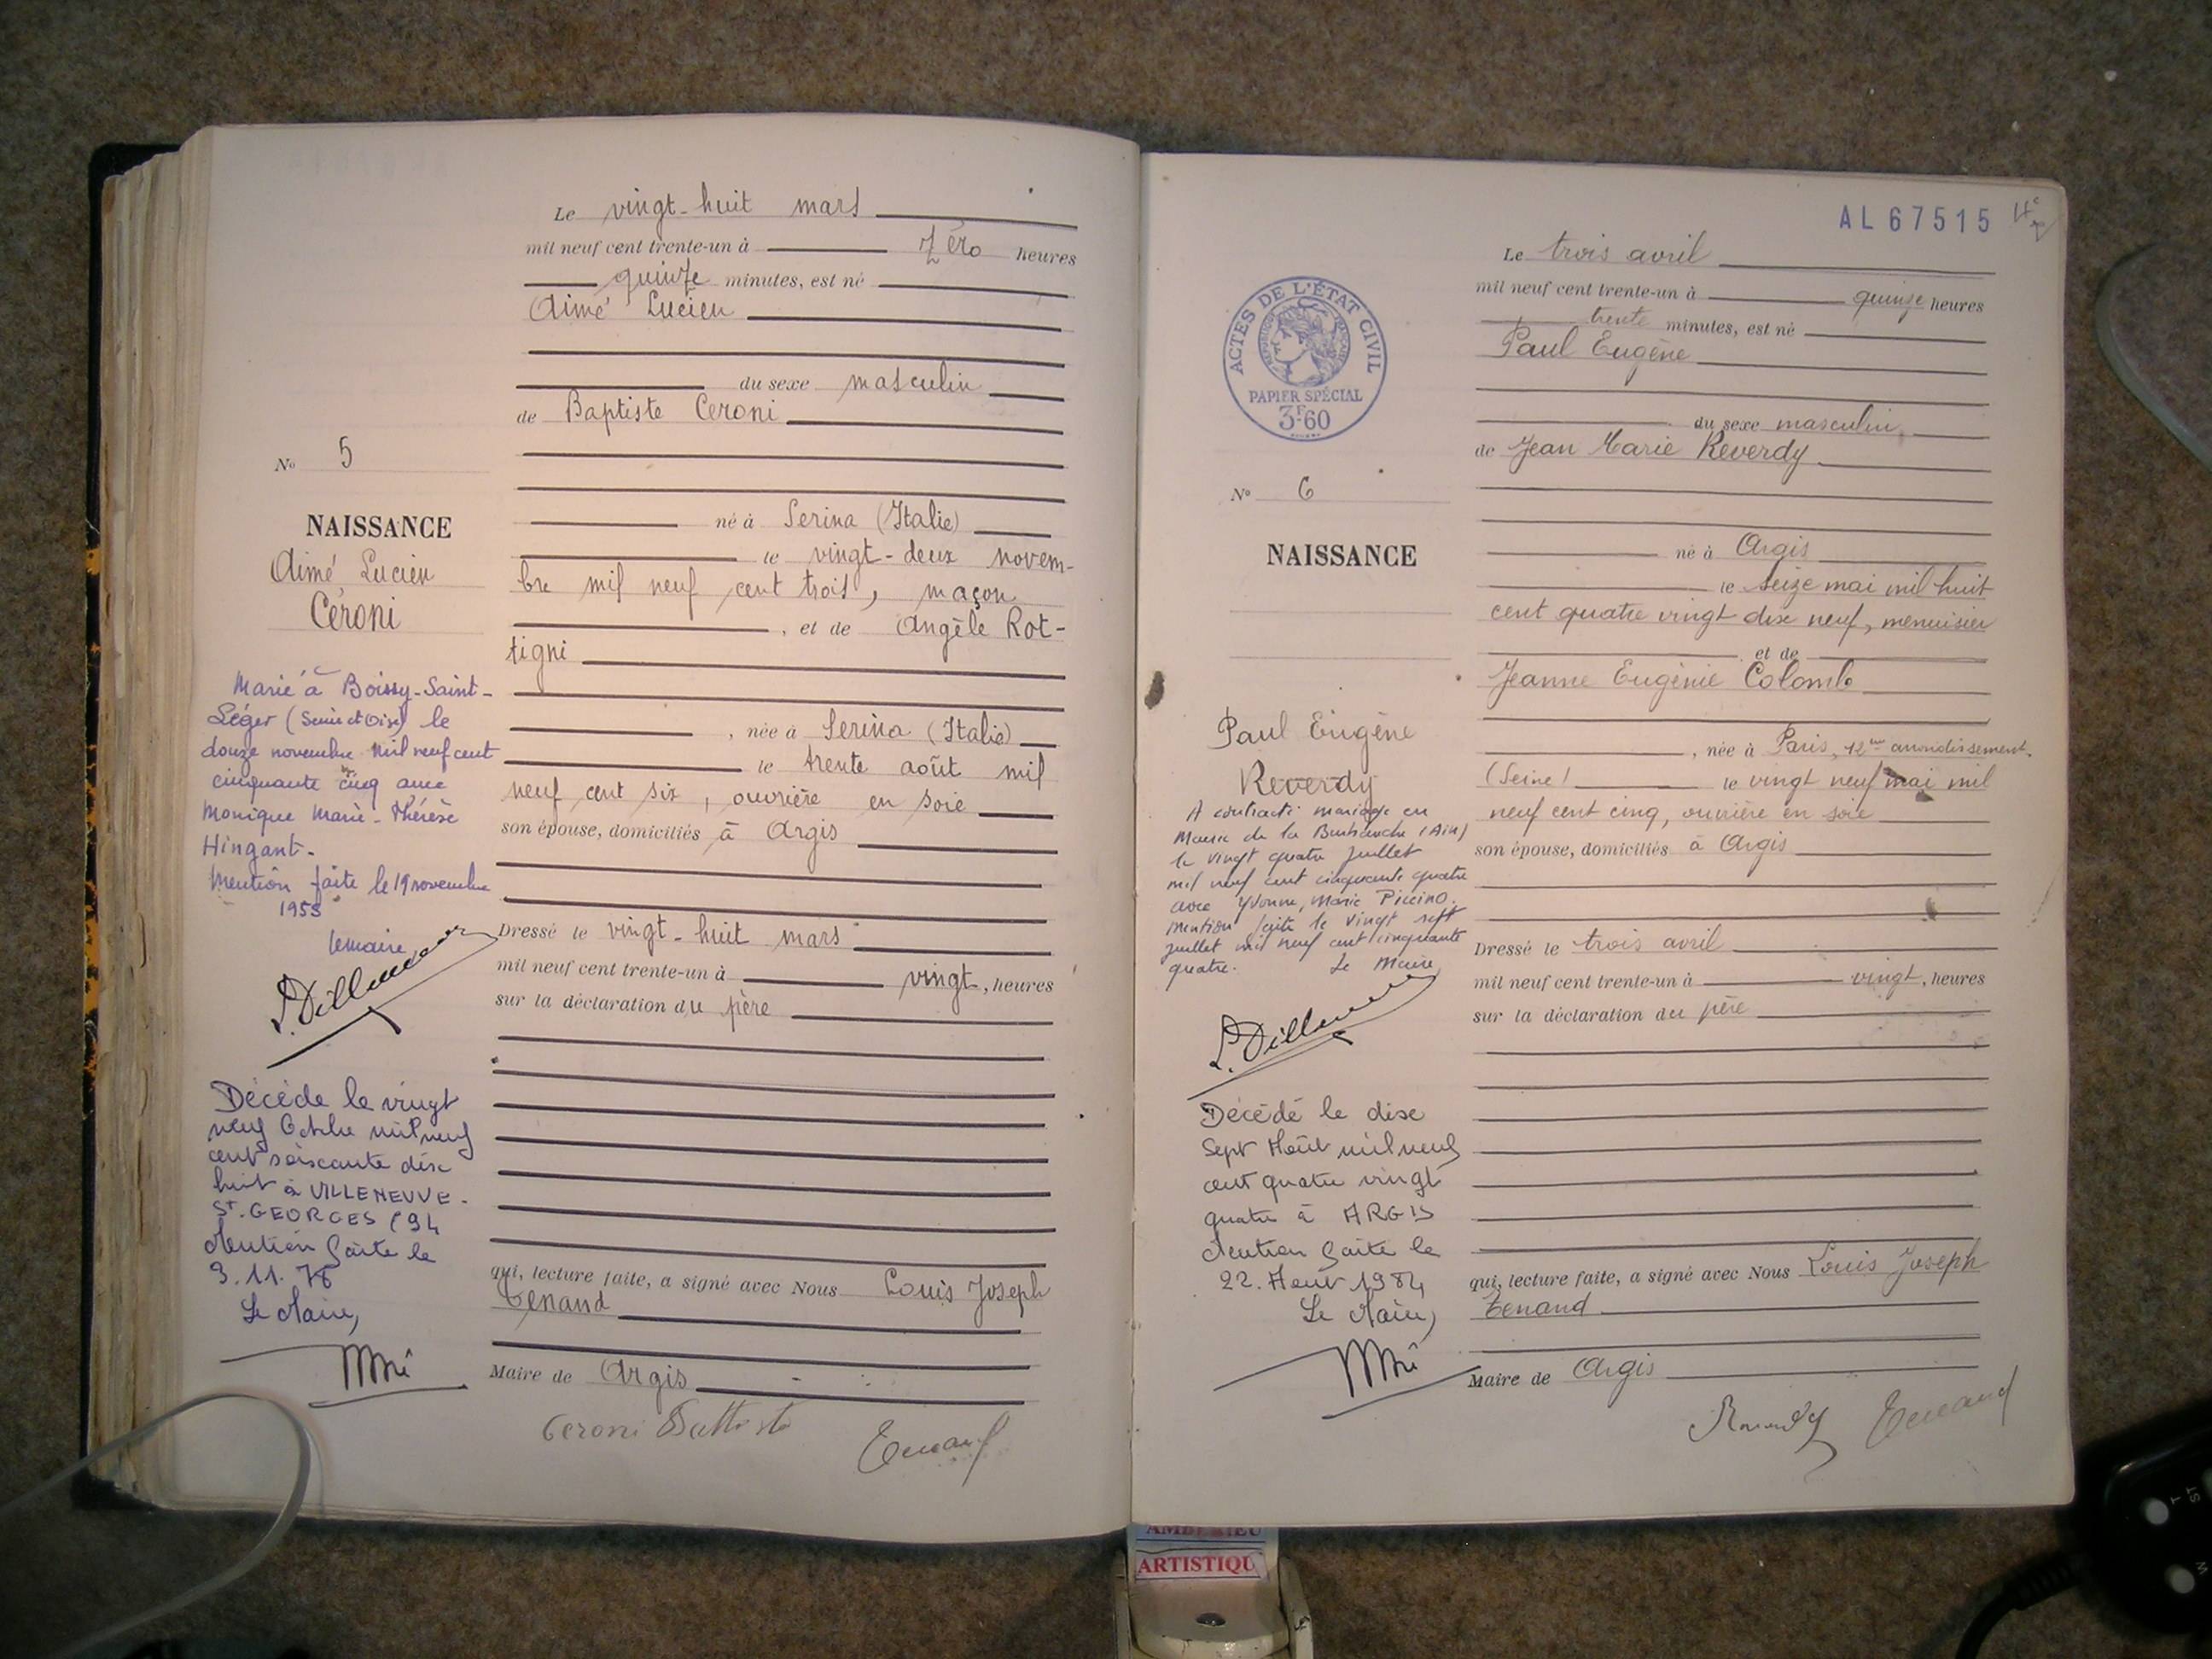 Le vingt-huit mars
mil neuf cent trente-un à Zéro heures
quinze minutes, est né
Aimé Lucien
du sexe masculin
de Baptiste Ceroni
né à Serina (Italie)
le vingt-deux novem-
bre mil neuf cent trois, maçon
, et de Angèle Rot-
tigni
, née à Serina (Italie)
le trente août mil
neuf cent six, ouvrière en soie
son épouse, domiciliés à Argis
Dressé le vingt-huit mars
mil neuf cent trente-un à vingt, heures
sur la déclaration du père
qui, lecture faite, a signé avec Nous Louis Joseph
Tenand
Maire de Argis
Ceroni Battista
Tenand
No 5
NAISSANCE
Aimé Lucien
Céroni
Marié à Boissy-Saint-
Léger (Seine et Oise) le
douze novembre mil neuf cent
cinquante cinq avec
Monique Marie-Thérèse
Hingant.
Mention faite le 19 novembre
1955
Le maire
Décédé le vingt
neuf Octobre mil neuf
cent soixante dix
huit à VILLENEUVE-
ST. GEORGES (94
Mention faite le
3.11.78
Le Maire,
AL67515
ACTES DE L'ÉTAT CIVIL
RÉPUBLIQUE FRANÇAISE
PAPIER SPÉCIAL
3F60
Le trois avril
mil neuf cent trente-un à quinze heures
trente minutes, est né
Paul Eugène
du sexe masculin
de Jean Marie Reverdy
né à Argis
le seize mai mil huit
cent quatre vingt dix neuf, menuisier
et de
Jeanne Eugénie Colomb
, née à Paris, 12me arrondissement.
(Seine) le vingt neuf mai mil
neuf cent cinq, ouvrière en soie
son épouse, domiciliés à Argis
Dressé le trois avril
mil neuf cent trente-un à vingt, heures
sur la déclaration du père
qui, lecture faite, a signé avec Nous Louis Joseph
Tenand
Maire de Argis
Reverdy Tenand
No 6
NAISSANCE
Paul Eugène
Reverdy
A contracté mariage en
Mairie de la Burbanche (Ain)
le vingt quatre juillet
mil neuf cent cinquante quatre
avec Yvonne, Marie Piccino.
mention faite le vingt sept
juillet mil neuf cent cinquante
quatre. Le Maire
Décédé le dix
Sept Août mil neuf
cent quatre vingt
quatre à ARGIS
Mention faite le
22. Août 1984
Le Maire,
ARTISTIQU